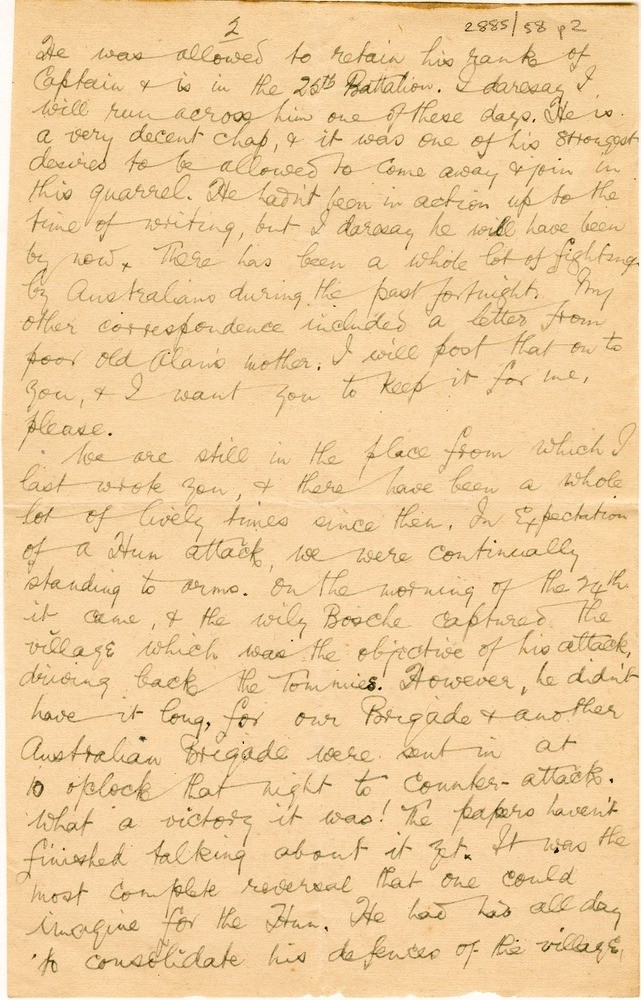 2
2885/58 p2
He was allowed to retain his rank of
Captain & is in the 25th Battalion. I daresay I
will run across him one of these days. He is
a very decent chap, & it was one of his strongest
desires to be allowed to come away & join in
this quarrel. He hadn't been in action up to the
time of writing, but I daresay he will have been
by now. There has been a whole lot of fighting
by Australians during the past fortnight. My
other correspondence included a letter from
poor old Alan's mother. I will post that on to
you, & I want you to keep it for me,
please.
We are still in the place from which I
last wrote you, & there have been a whole
lot of lively times since then. In Expectation
of a Hun attack, we were continually
standing to arms. On the morning of the 24th
it came, & the wily Bosche captured the
village which was the objective of his attack,
driving back the Tommies. However, he didn't
have it long, for our Brigade & another
Australian Brigade were sent in at
10 o'clock that night to counter-attack.
What a victory it was! The papers haven't
finished talking about it yet. It was the
most complete reversal that one could
imagine for the Hun. He had had all day
to consolidate his defences of the village,